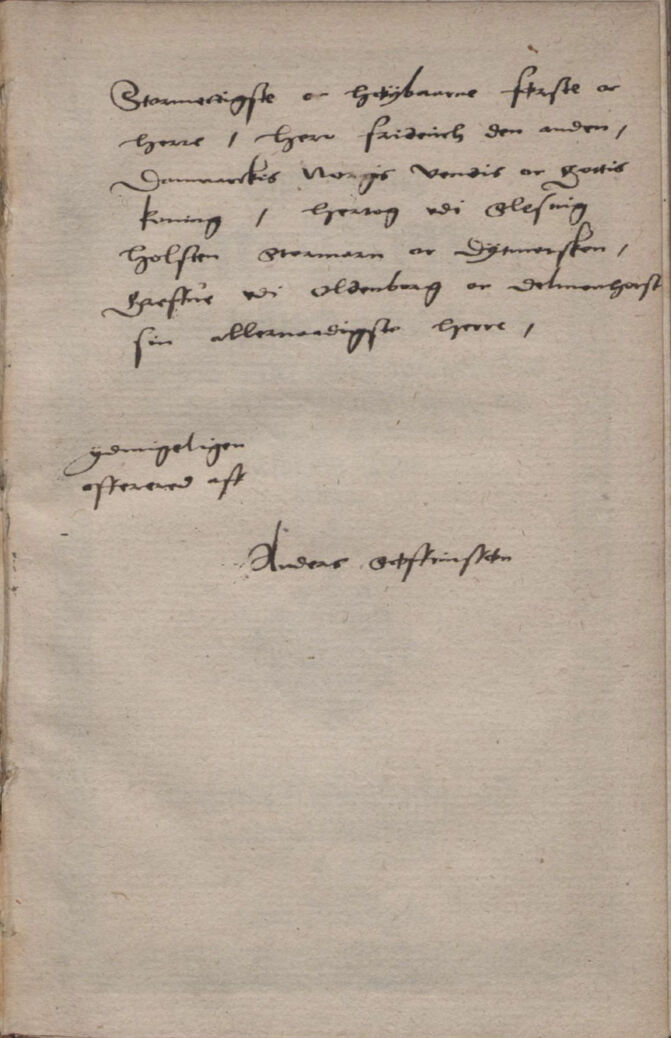 Stormectigste oc høybaarne første oc
herre / herr friderich den anden /
Danmarckis Norgis Vendis oc Gottis
koning / hertog vdi Slesuig
holsten Stormarn oc Dytmersken /
Greffue vdi Oldenborg oc Delmenhorst
sin allernaadigste herre /
ydmigeligen
offereret aff
Anders